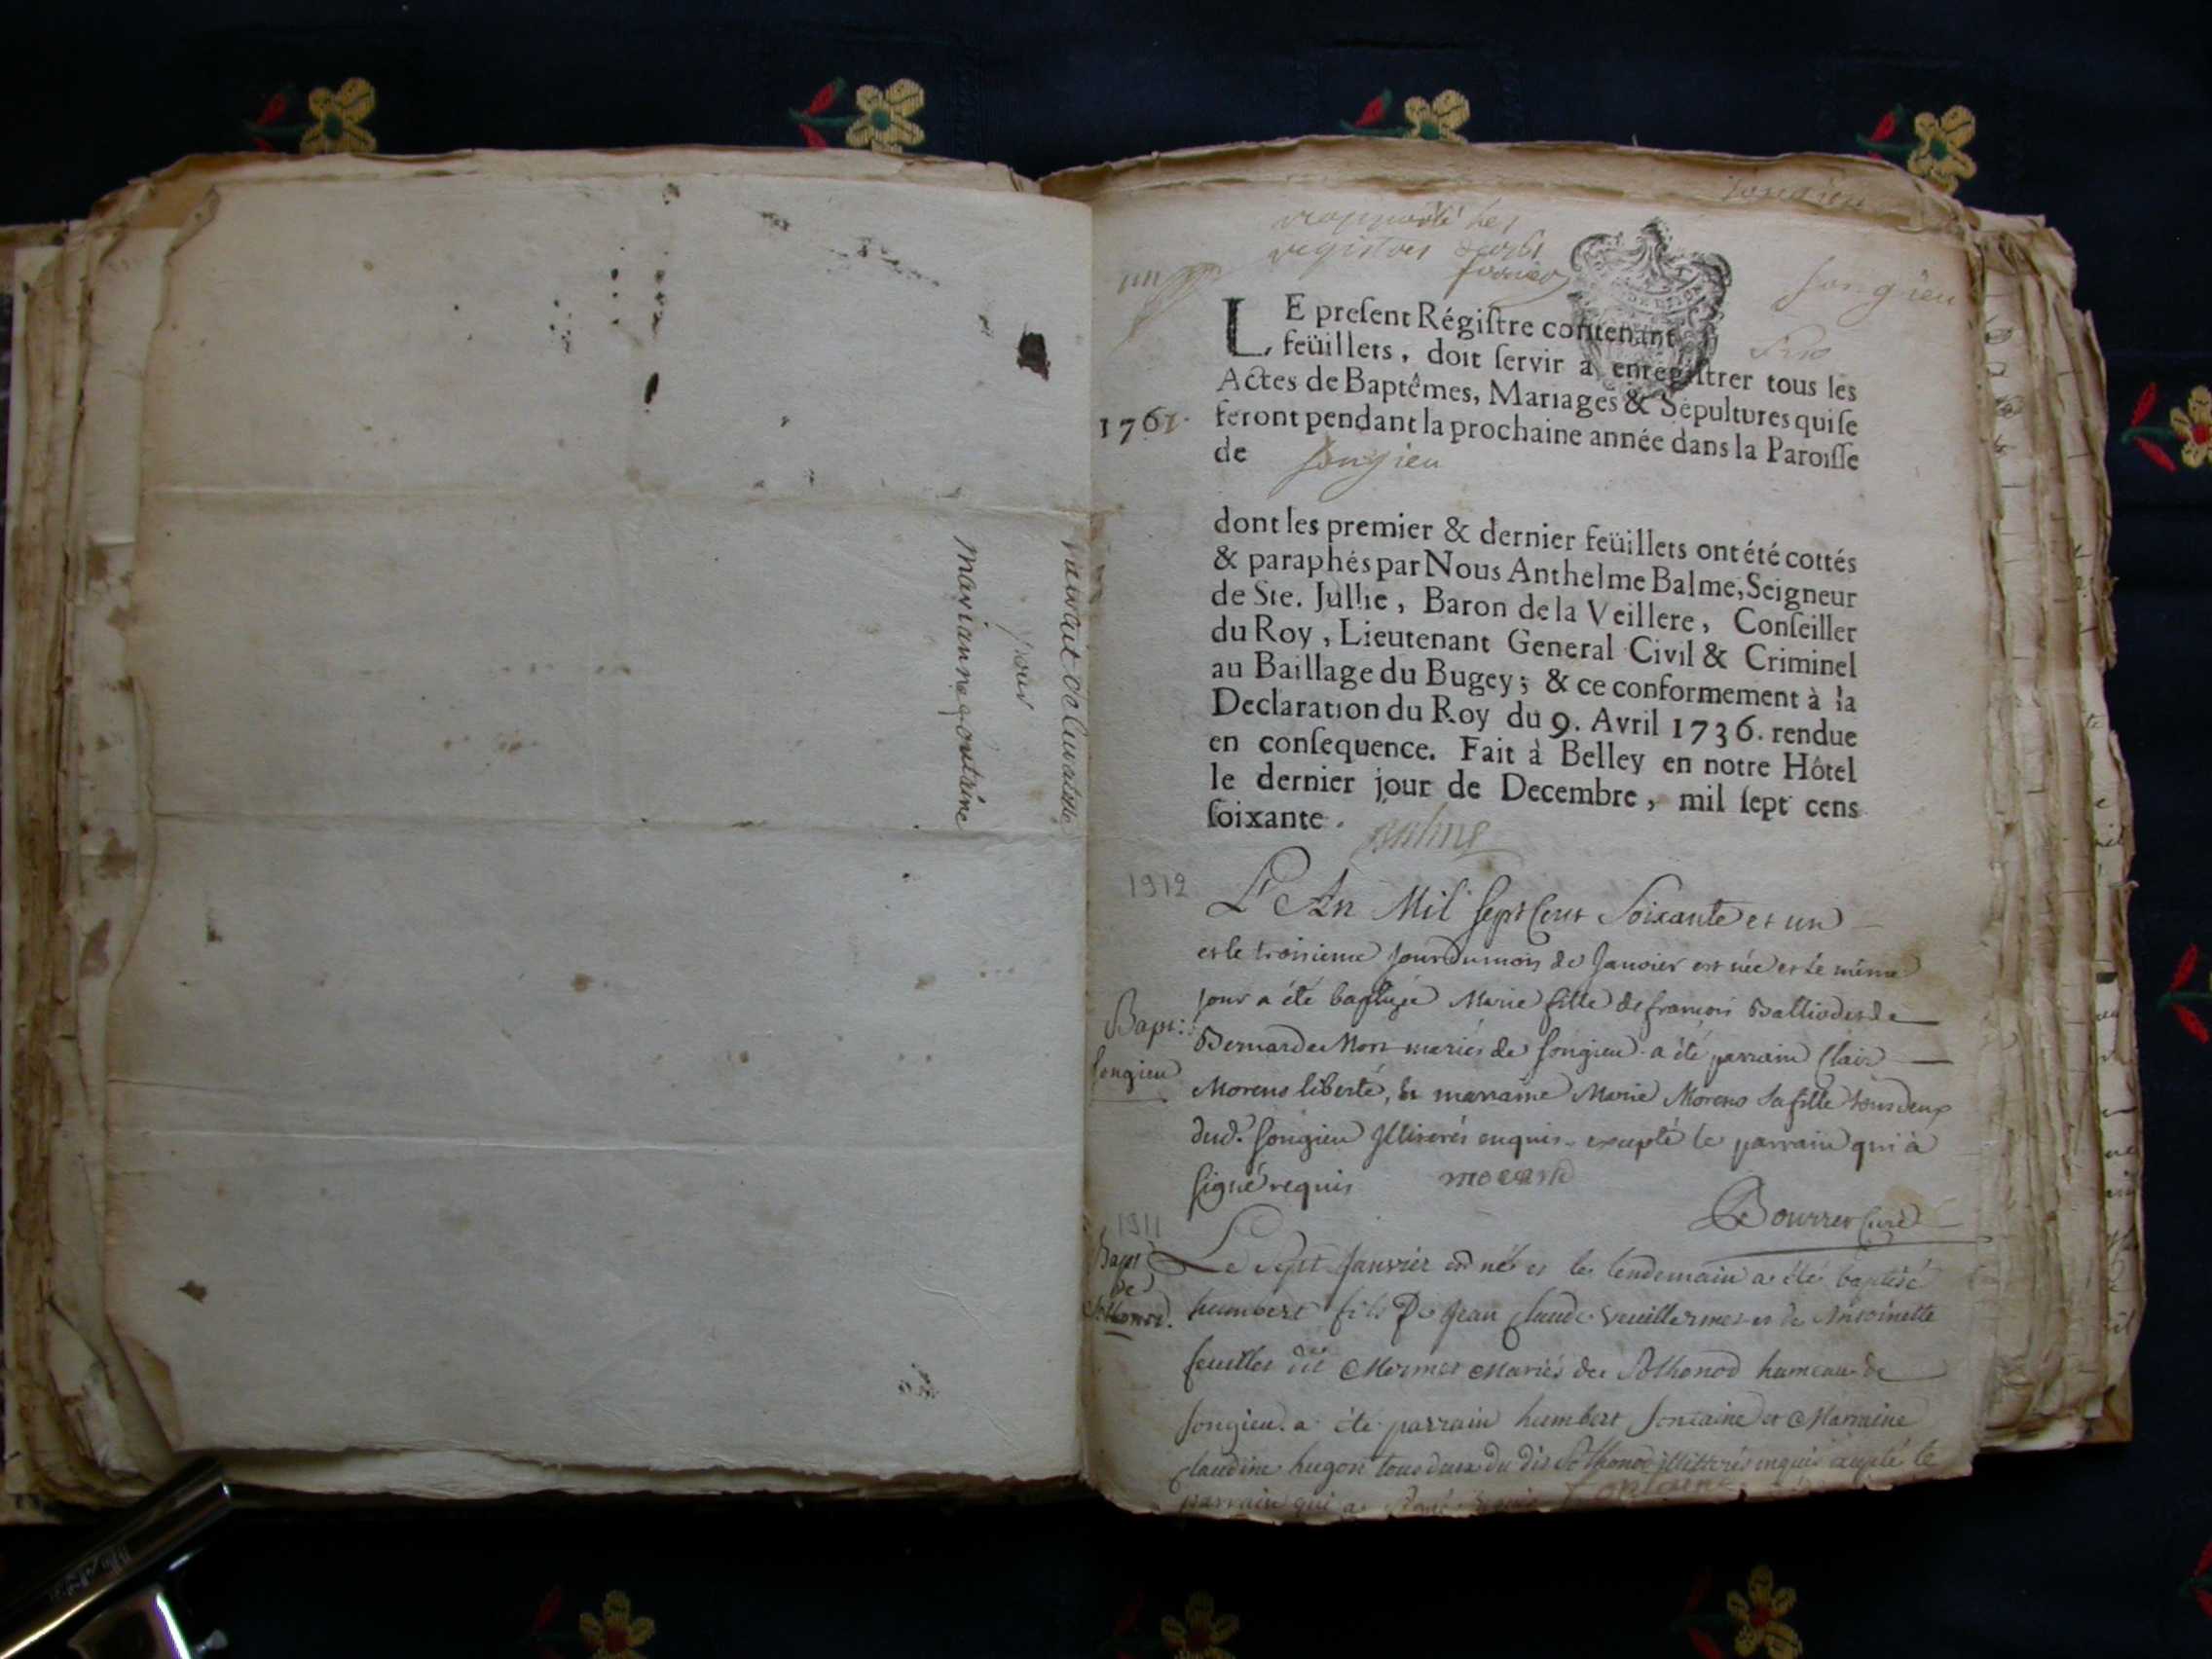 extrait de
pour
marianne
registres
Songieu
LE preſent Régiſtre contenant
feüillets, doit ſervir à enregiſtrer tous les
Actes de Baptêmes, Mariages & Sépultures qui ſe
1761. feront pendant la prochaine année dans la Paroiſſe
de Songieu
dont les premier & dernier feüillets ont été cottés
& paraphés par Nous Anthelme Balme, Seigneur
de Ste. Jullie, Baron de la Veillere, Conſeiller
du Roy, Lieutenant General Civil & Criminel
au Baillage du Bugey; & ce conformement à la
Declaration du Roy du 9. Avril 1736. rendue
en conſequence. Fait à Belley en notre Hôtel
le dernier jour de Decembre, mil ſept cens
ſoixante. Balme
1912
L'An Mil Sept Cent Soixante et un
et le troisieme jour du mois de Janvier est née et le même
jour a été baptisée Marie fille de françois Balliod et de
Bapt: Bernarde Mort mariés de Songieu a été parrain Clair
Songieu
Morens liberté, & marraine Marie Morens sa fille tous deux
dud. Songieu Illiterés enquis excepté le parrain qui à
signé requis morand
Bourrer Curé
1911
Bapt
de
Sothonod.
Le Sept Janvier est né et le lendemain a été baptisé
humbert fils De Jean Claude Vuillermet et de Antoinette
feuillet dit Mermet Mariés de Sothonod hameau de
Songieu. a été parrain humbert fontaine et Marraine
Claudine hugon tous deux du dit Sothonod illitterés enquis excepté le
parrain qui a signé requis fontaine